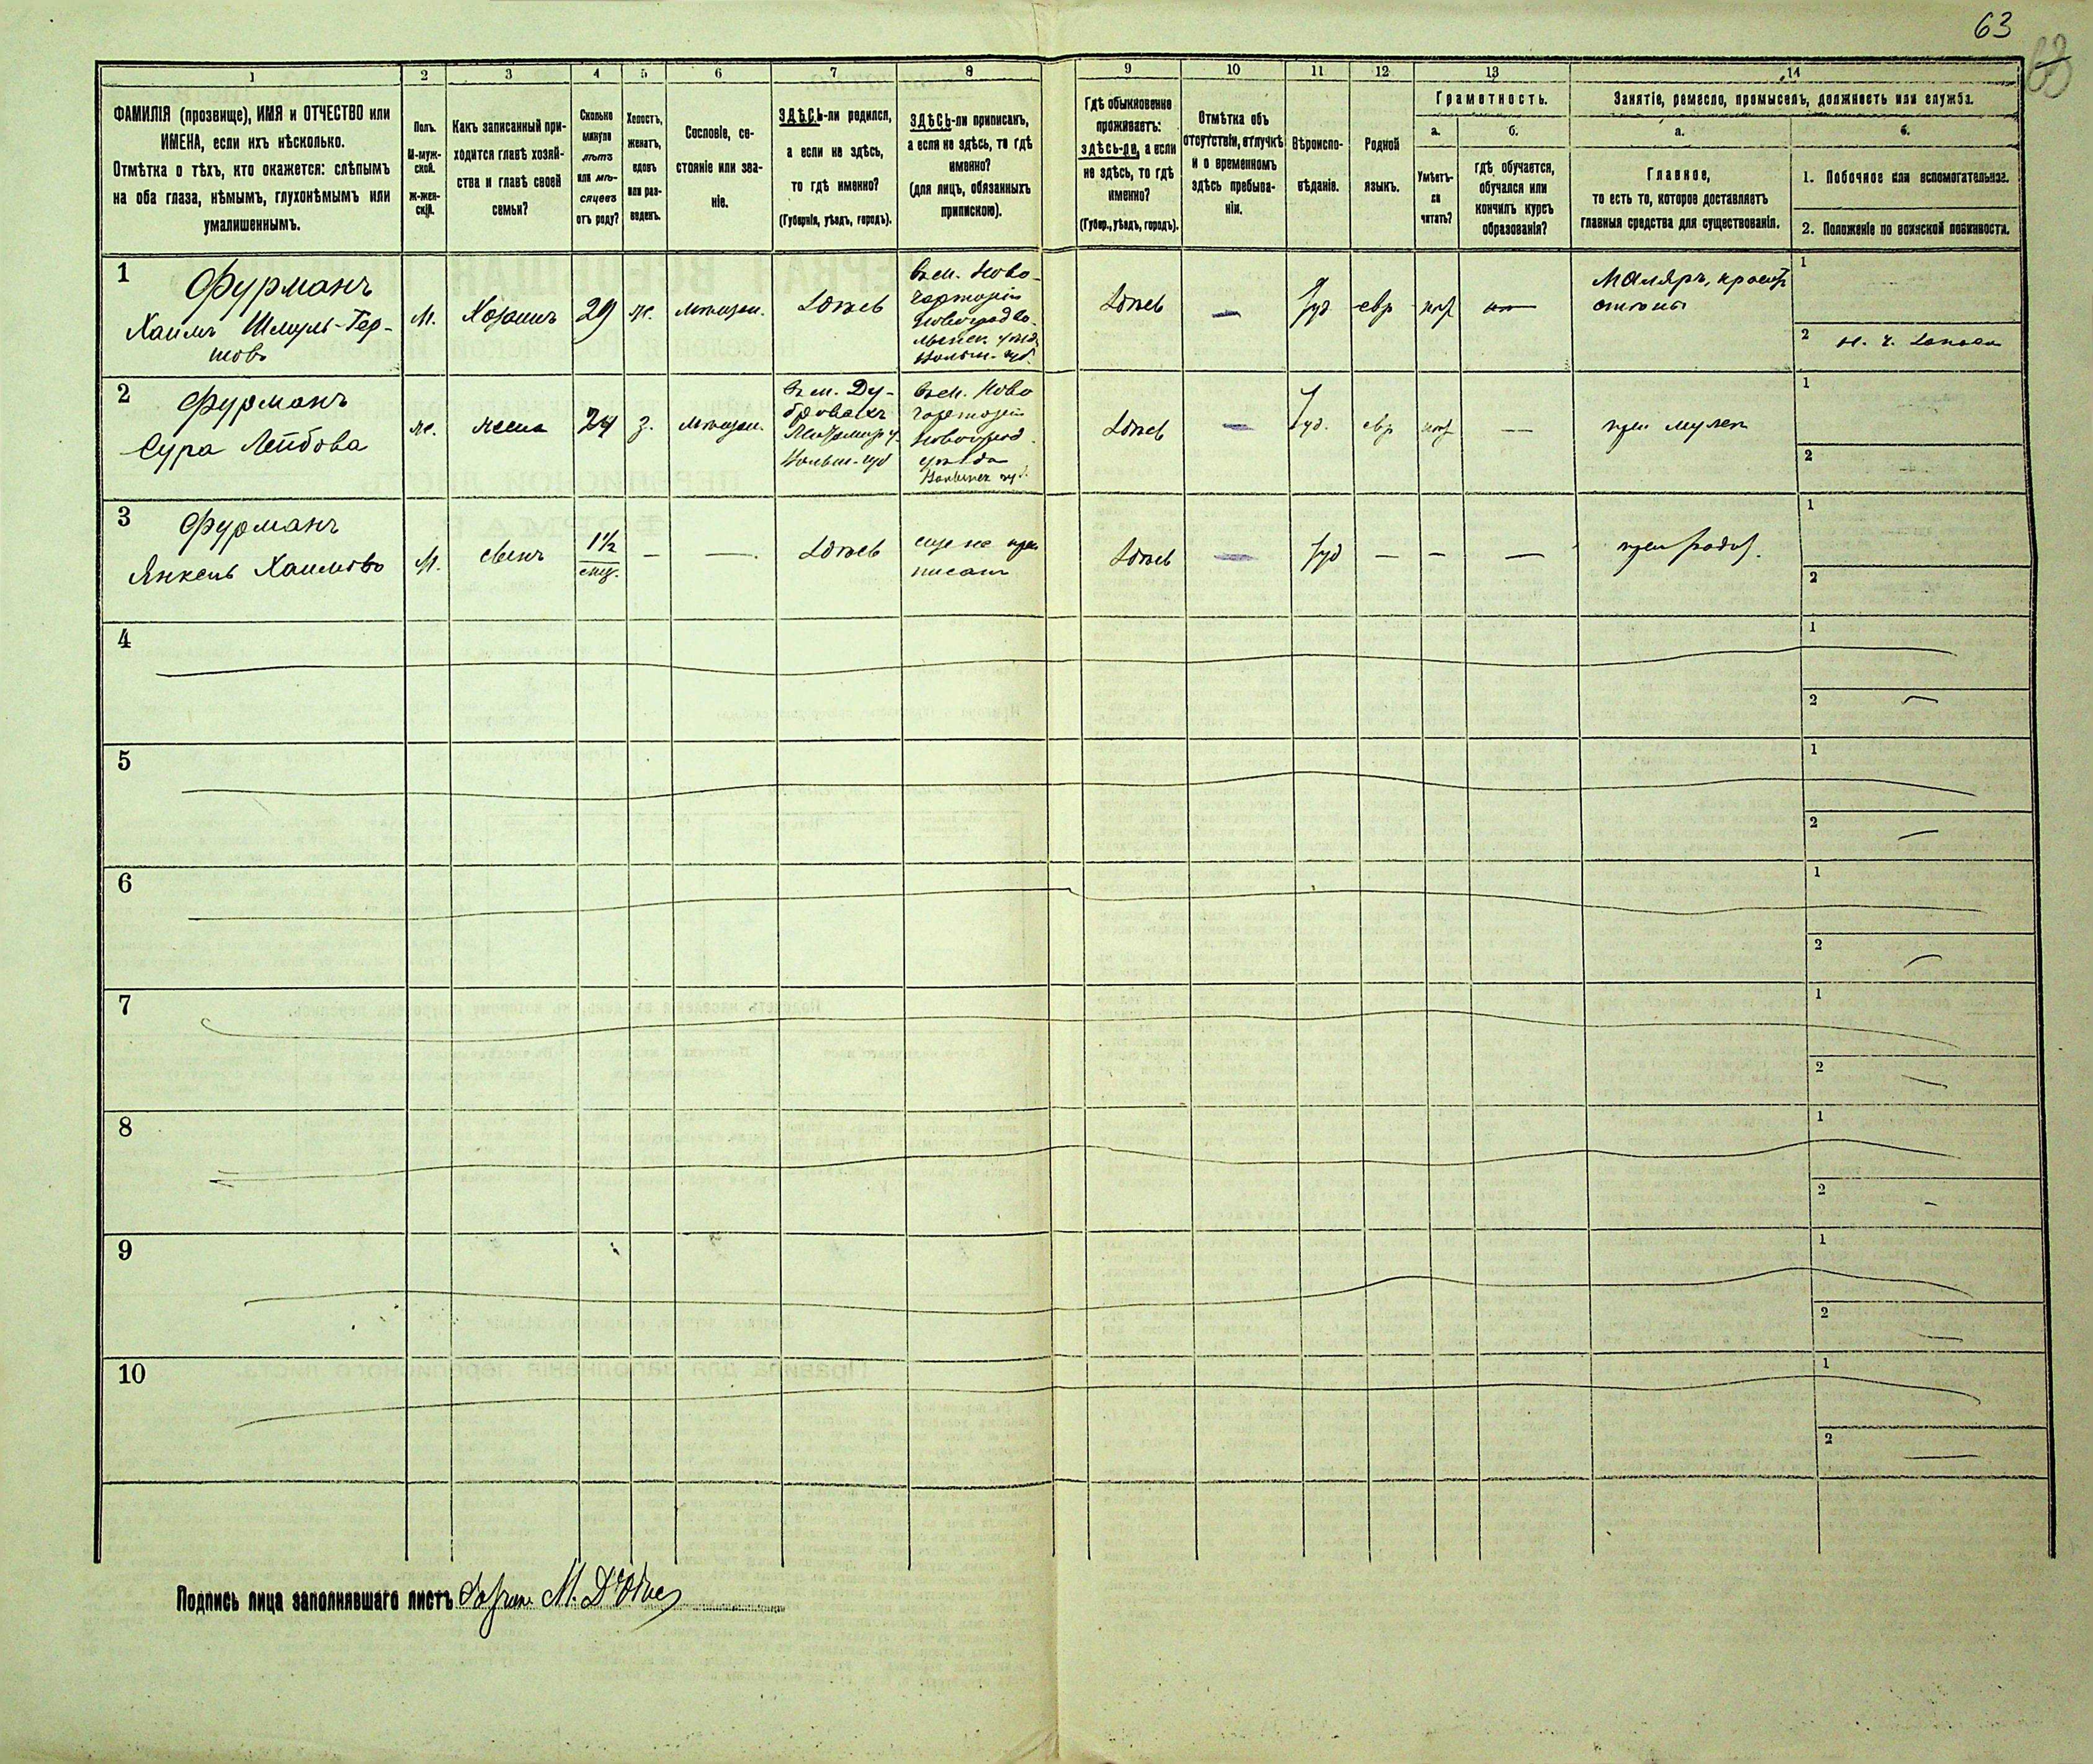 63
1 2 3 4 5 6 7 8 9 10 11 12 13 14
ФАМИЛІЯ (прозвище), ИМЯ и ОТЧЕСТВО или
ИМЕНА, если ихъ нѣсколько.
Отмѣтка о тѣхъ, кто окажется: слѣпымъ
на оба глаза, нѣмымъ, глухонѣмымъ или
умалишеннымъ.
Полъ.
М-муж-
ской.
Ж-жен-
скій.
Какъ записанный при-
ходится главѣ хозяй-
ства и главѣ своей
семьи?
Сколько
минуло
лѣтъ
или мѣ-
сяцевъ
отъ роду?
Холостъ,
женатъ,
вдовъ
или раз-
веденъ.
Сословіе, со-
стояніе или зва-
ніе.
ЗДѢСЬ-ли родился,
а если не здѣсь,
то гдѣ именно?
(Губернія, уѣздъ, городъ).
ЗДѢСЬ-ли приписанъ,
а если не здѣсь, то гдѣ
именно?
(для лицъ, обязанныхъ
припискою).
Гдѣ обыкновенно
проживаетъ:
здѣсь-ли, а если
не здѣсь, то гдѣ
именно?
(Губер., уѣздъ, городъ).
Отмѣтка объ
отсутствіи, отлучкѣ
и о временномъ
здѣсь пребыва-
ніи.
Вѣроиспо-
вѣданіе.
Родной
языкъ.
Грамотность.
а.
Умѣетъ-
ли
читать?
б.
гдѣ обучается,
обучался или
кончилъ курсъ
образованія?
Занятіе, ремесло, промыселъ, должность или служба.
а.
Главное,
то есть то, которое доставляетъ
главныя средства для существованія.
б.
1. Побочное или вспомогательное.
2. Положеніе по воинской повинности.
1
Фурманъ
Хаимъ Шмуль-Гер-
шовъ
М.
Хозяинъ
29
ж.
мѣщан.
Здѣсь
Здѣсь
—
Іуд
евр
Маляръ, красит
стѣны
1
2
2
Фурманъ
Сура Лейбова
ж.
жена
24
з.
мѣщан.
Въ м. Ду-
Волын. губ
Здѣсь
—
Іуд.
евр
—
при мужѣ
1
2
3
Фурманъ
Янкель Хаимовъ
М.
сынъ
1½
—
—
Здѣсь
еще не при
писанъ
Здѣсь
—
Іуд
—
—
—
при родит.
1
2
4
1
2
5
1
2
6
1
2
7
1
2
8
1
2
9
1
2
10
1
2
Подпись лица заполнявшаго листъ